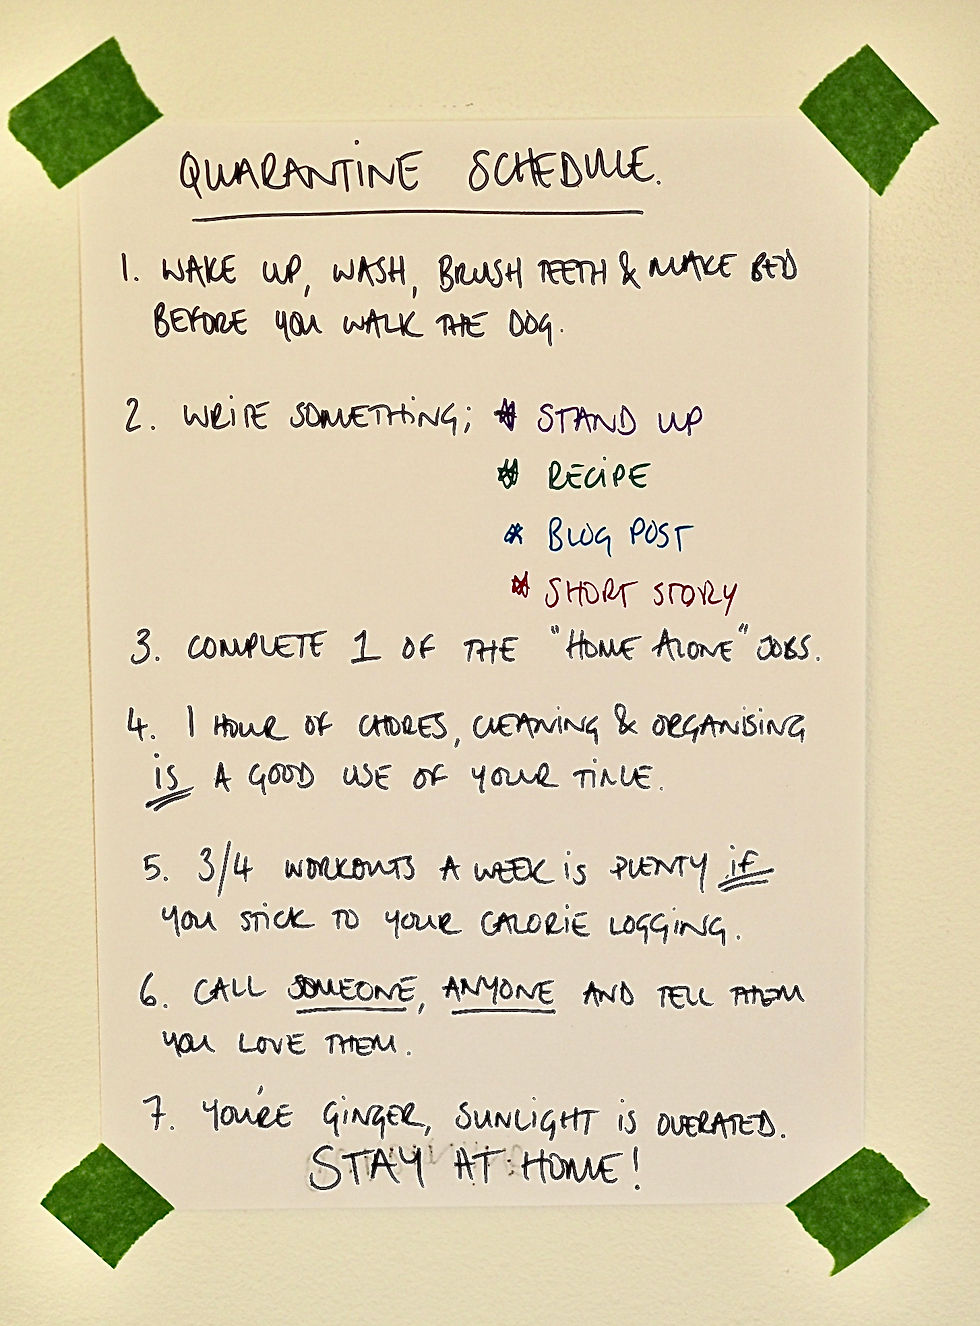 QUARANTINE SCHEDULE.
1. WAKE UP, WASH, BRUSH TEETH & MAKE BED
BEFORE YOU WALK THE DOG.
2. WRITE SOMETHING; * STAND UP
* RECIPE
* BLOG POST
* SHORT STORY
3. COMPLETE 1 OF THE "HOME ALONE" JOBS.
4. 1 HOUR OF CHORES, CLEANING & ORGANISING
IS A GOOD USE OF YOUR TIME.
5. 3/4 WORKOUTS A WEEK IS PLENTY IF
YOU STICK TO YOUR CALORIE LOGGING.
6. CALL SOMEONE, ANYONE AND TELL THEM
YOU LOVE THEM.
7. YOU'RE GINGER, SUNLIGHT IS OVERATED.
STAY AT HOME!